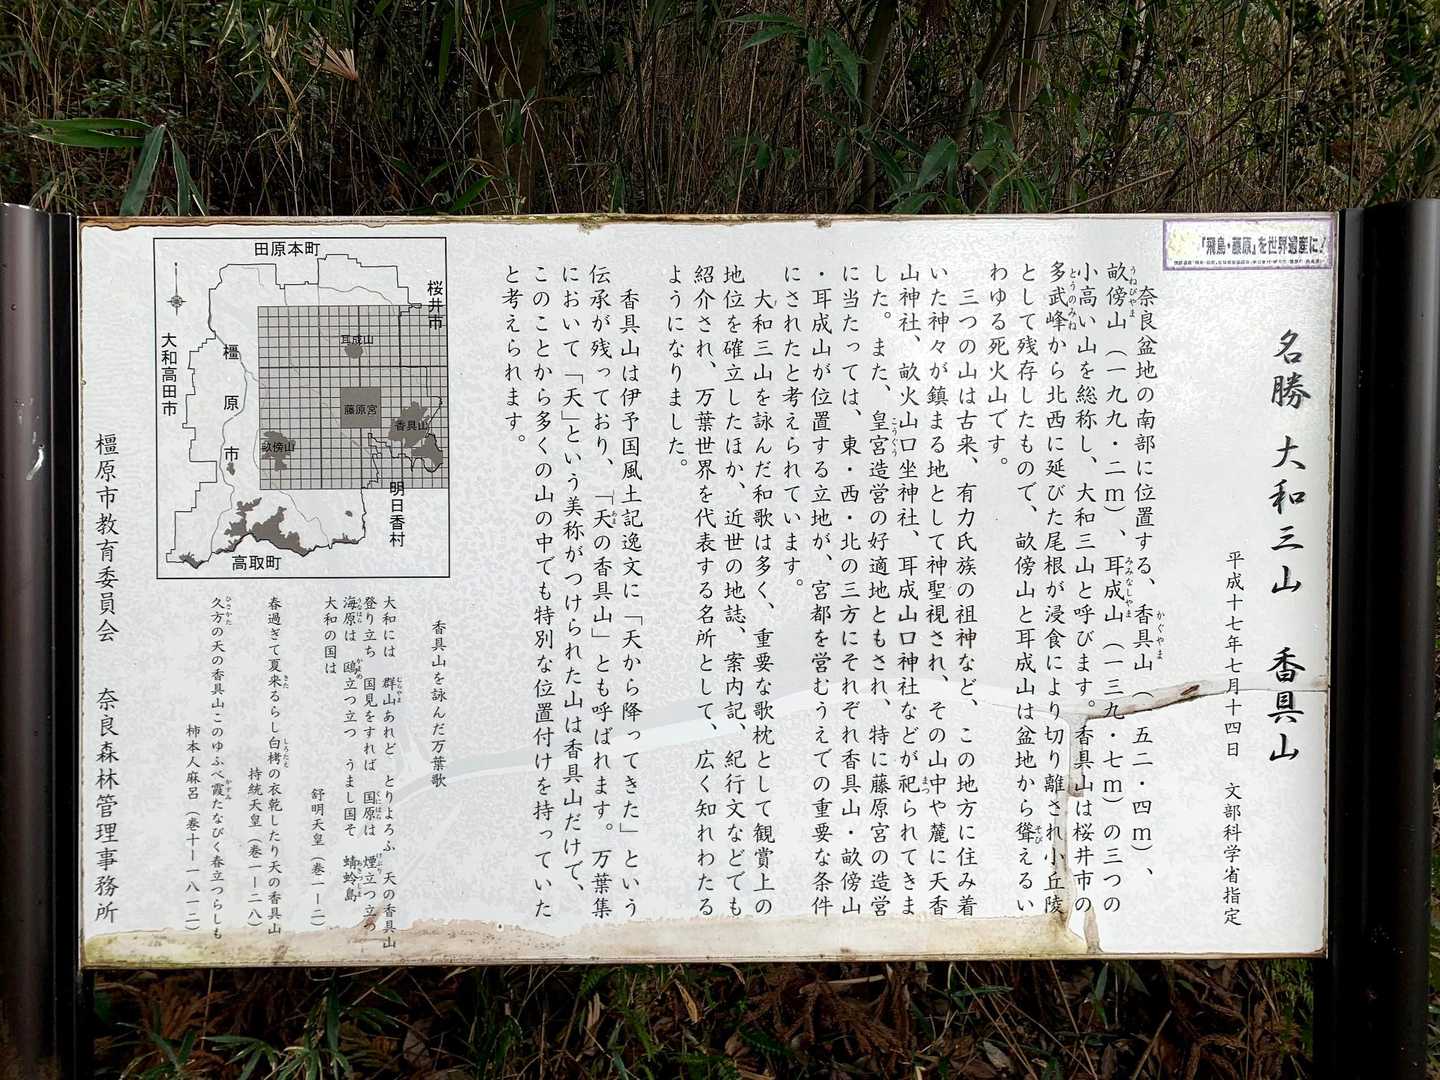 『飛鳥・藤原』を世界遺産に！
名勝 大和三山 香具山
平成十七年七月十四日 文部科学省指定
奈良盆地の南部に位置する、香具山（一五二・四ｍ）、
畝傍山（一九九・二ｍ）、耳成山（一三九・七ｍ）の三つの
小高い山を総称し、大和三山と呼びます。香具山は桜井市の
多武峰から北西に延びた尾根が浸食により切り離され小丘陵
として残存したもので、畝傍山と耳成山は盆地から聳えるい
わゆる死火山です。
三つの山は古来、有力氏族の祖神など、この地方に住み着
いた神々が鎮まる地として神聖視され、その山中や麓に天香
山神社、畝火山口坐神社、耳成山口神社などが祀られてきま
した。また、皇宮造営の好適地ともされ、特に藤原宮の造営
に当たっては、東・西・北の三方にそれぞれ香具山・畝傍山
・耳成山が位置する立地が、宮都を営むうえでの重要な条件
にされたと考えられています。
大和三山を詠んだ和歌は多く、重要な歌枕として観賞上の
地位を確立したほか、近世の地誌、案内記、紀行文などでも
紹介され、万葉世界を代表する名所として、広く知れわたる
ようになりました。
香具山は伊予国風土記逸文に「天から降ってきた」という
伝承が残っており、「天の香具山」とも呼ばれます。万葉集
において「天」という美称がつけられた山は香具山だけで、
このことから多くの山の中でも特別な位置付けを持っていた
と考えられます。
田原本町
桜井市
大和高田市
橿原市
耳成山
藤原宮
香具山
畝傍山
明日香村
高取町
香具山を詠んだ万葉歌
大和には 群山あれど とりよろふ 天の香具山
登り立ち 国見をすれば 国原は 煙立つ立つ
海原は 鴎立つ立つ うまし国そ 蜻蛉島
大和の国は
舒明天皇（巻一ー二）
春過ぎて夏来るらし白栲の衣乾したり天の香具山
持統天皇（巻一ー二八）
久方の天の香具山このゆふべ霞たなびく春立つらしも
柿本人麻呂（巻十ー一八一二）
橿原市教育委員会 奈良森林管理事務所